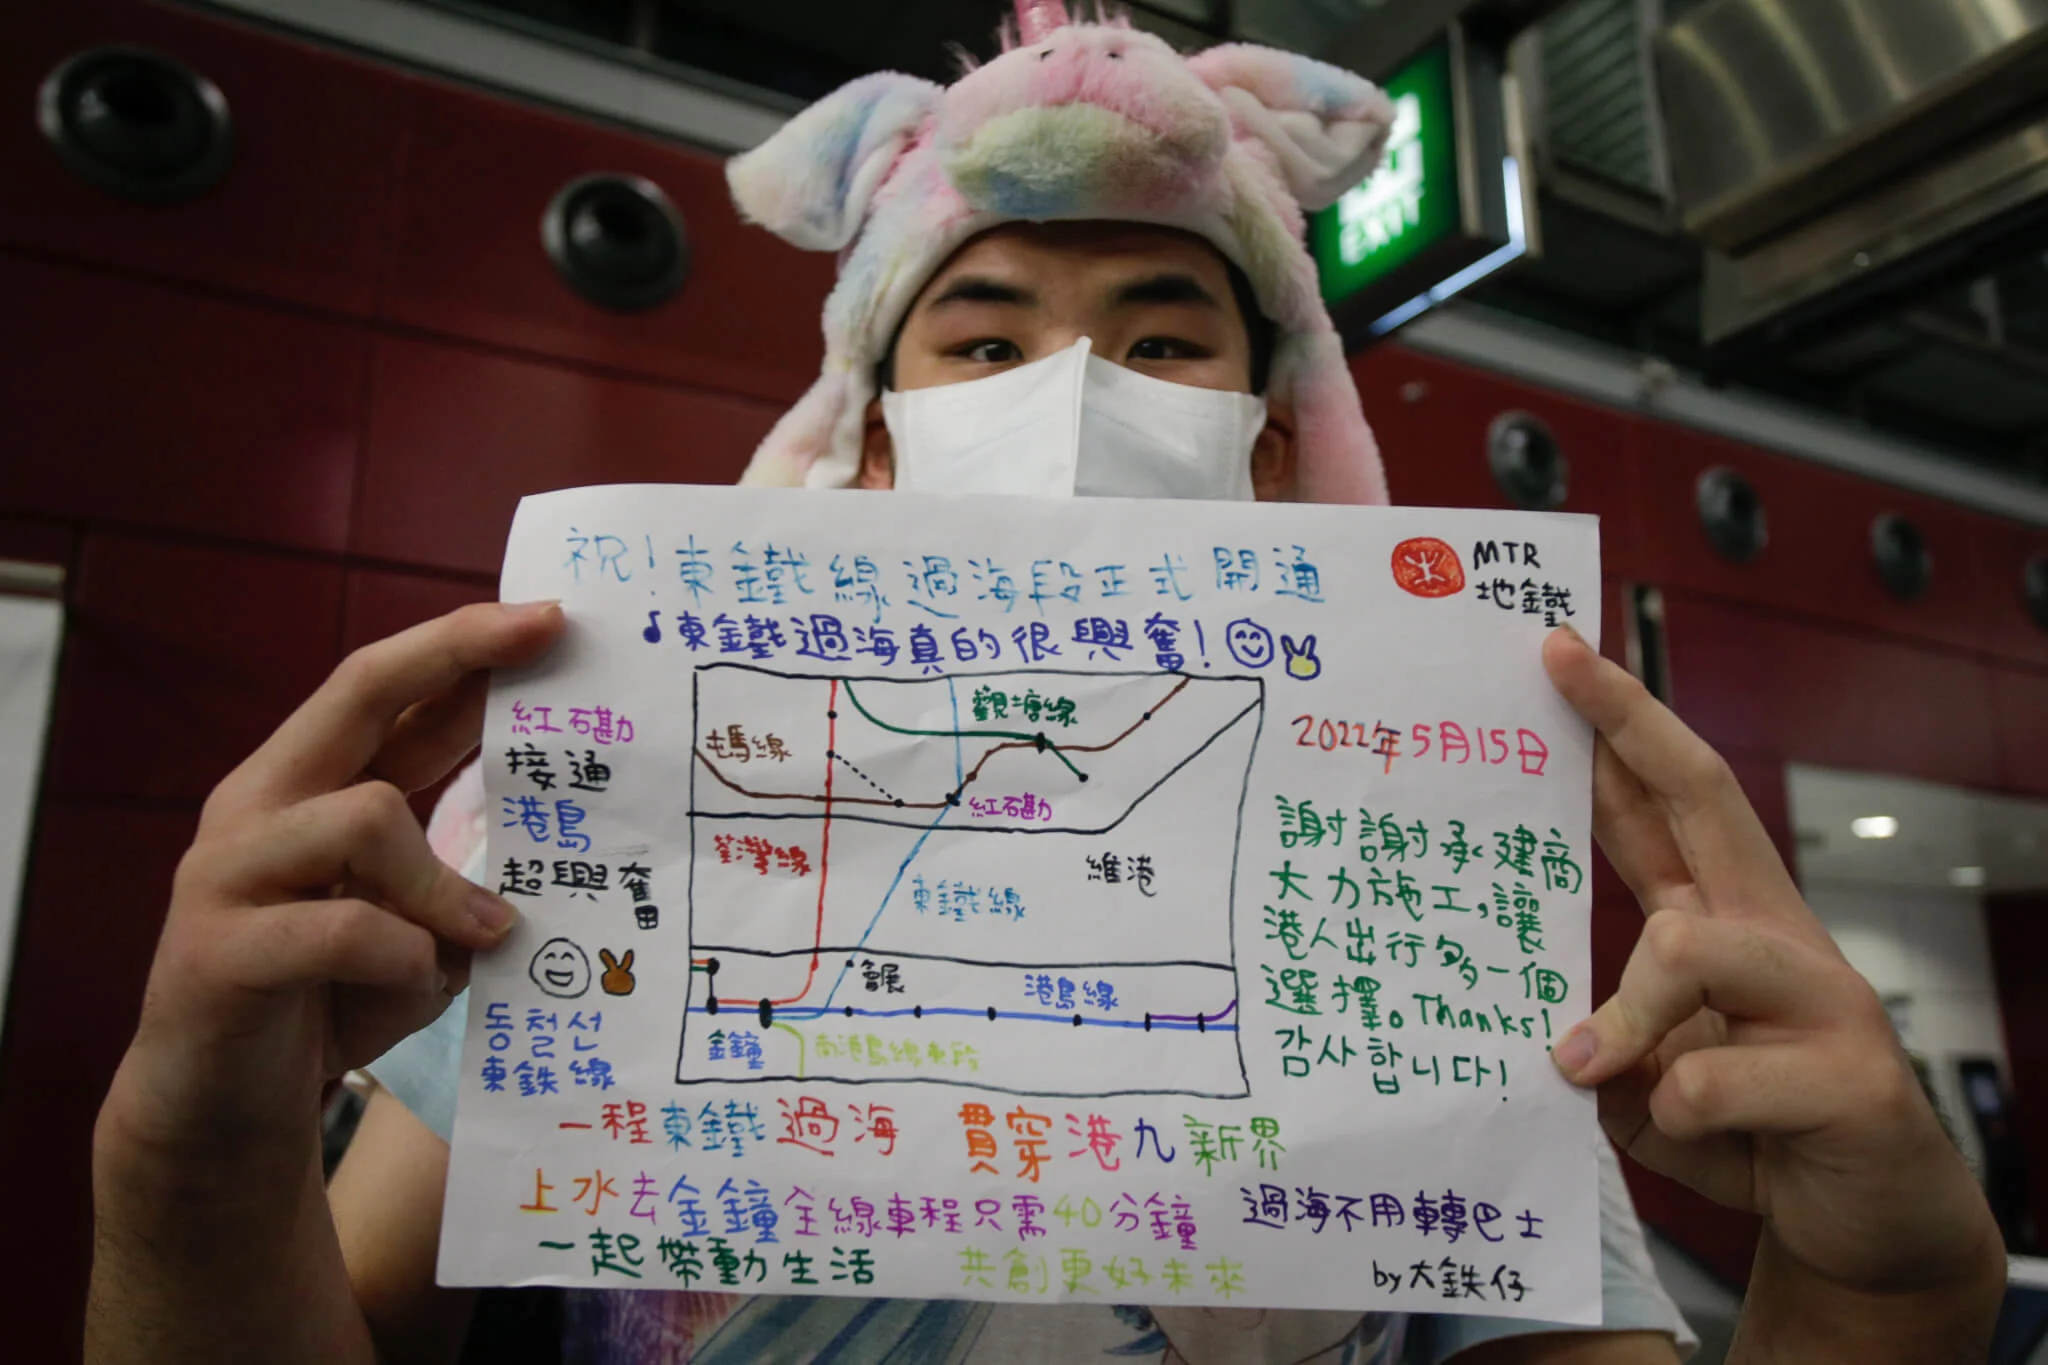 EXIT
祝!東鐵線過海段正式開通
MTR
地鐵
♪東鐵過海真的很興奮!
紅石勘
接通
港島
超興奮
동철선
東鉄線
屯馬線
觀塘線
紅石勘
荃灣線
東鐵線
維港
會展
港島線
金鐘
南港島線東段
2022年5月15日
謝謝承建商
大力施工,讓
港人出行多一個
選擇。Thanks!
감사합니다!
一程東鐵過海 貫穿港九新界
上水去金鐘全線車程只需40分鐘 過海不用轉巴士
一起帶動生活 共創更好未來
by大鉄仔